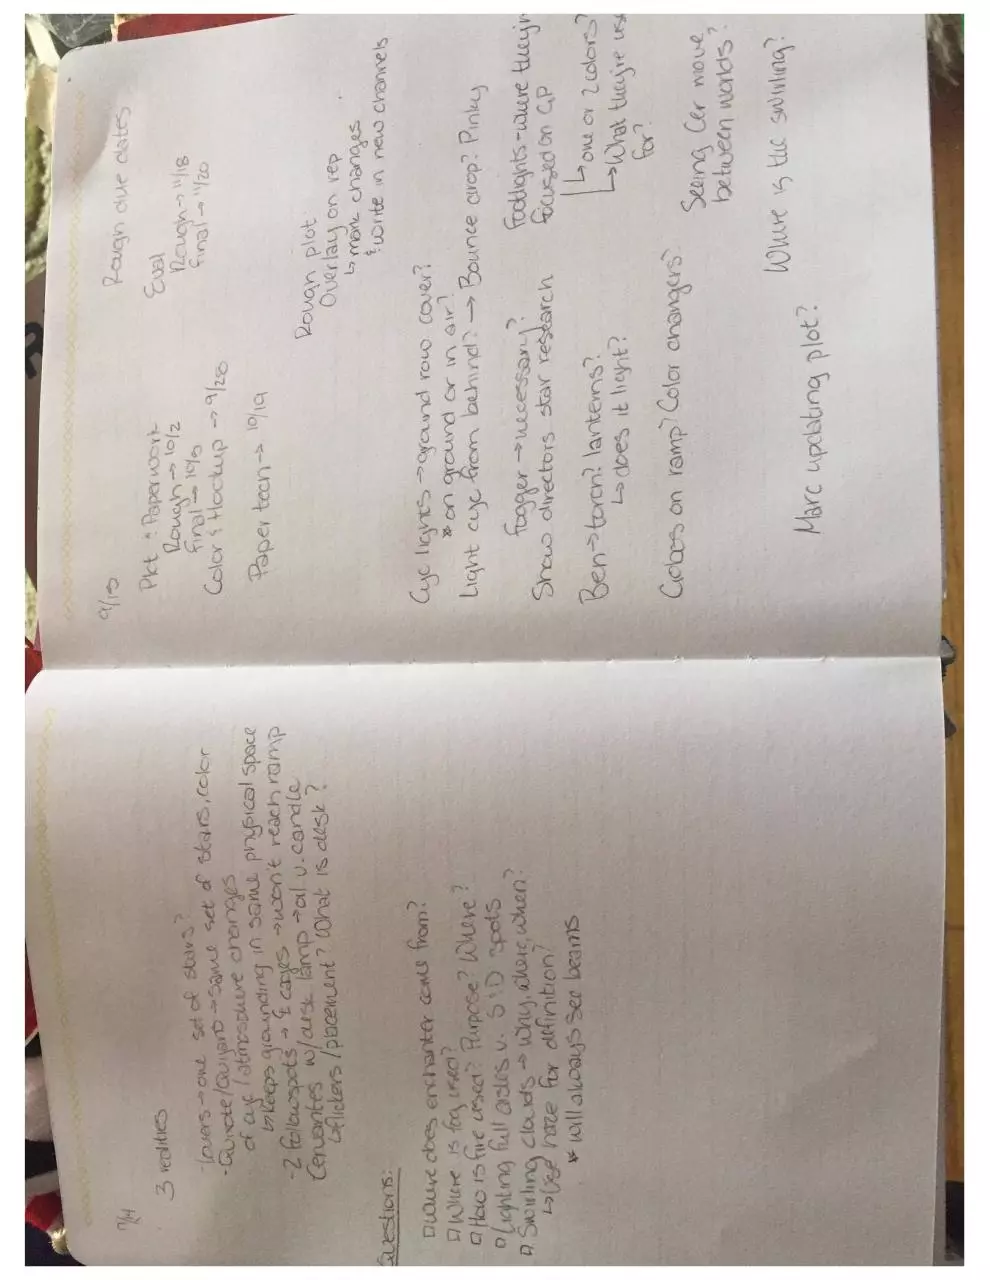 3 realities
-lovers→one set of stars?
-Quixote/Quijano→same set of stars, color
of cyc/atmosphere changes
↳keeps grounding in same physical space
-2 followspots→ & cages→won't reach ramp
Cervantes w/desk lamp→oil v. candle
↳flickers/placement? What is desk?
Questions:
□Where does enchanter come from?
□Where is fog used?
□How is fire used? Purpose? Where?
□Lighting full aisles v. S&D spots
□Swirling clouds→why, where, when?
↳Use haze for definition?
* will always see beams
9/18
Rough due dates
Plot & Paperwork
Rough→10/2
Final→10/5
Color & Hookup→9/28
Paper tech→10/19
Eval
Rough→11/18
Final→11/20
Rough plot:
Overlay on rep
↳mark changes
& write in new channels
Cyc lights→ground row cover?
* on ground or in air?
Light cyc from behind?→Bounce drop? Pinky
Fogger→necessary?
Show directors star research
Ben→torch? lanterns?
↳does it light?
Footlights-where they're
focused on GP
↳one or 2 colors?
↳What they're use
for?
Gobos on ramp? Color changers?
Seeing Cer move
between worlds?
Marc updating plot?
Where is the swirling?